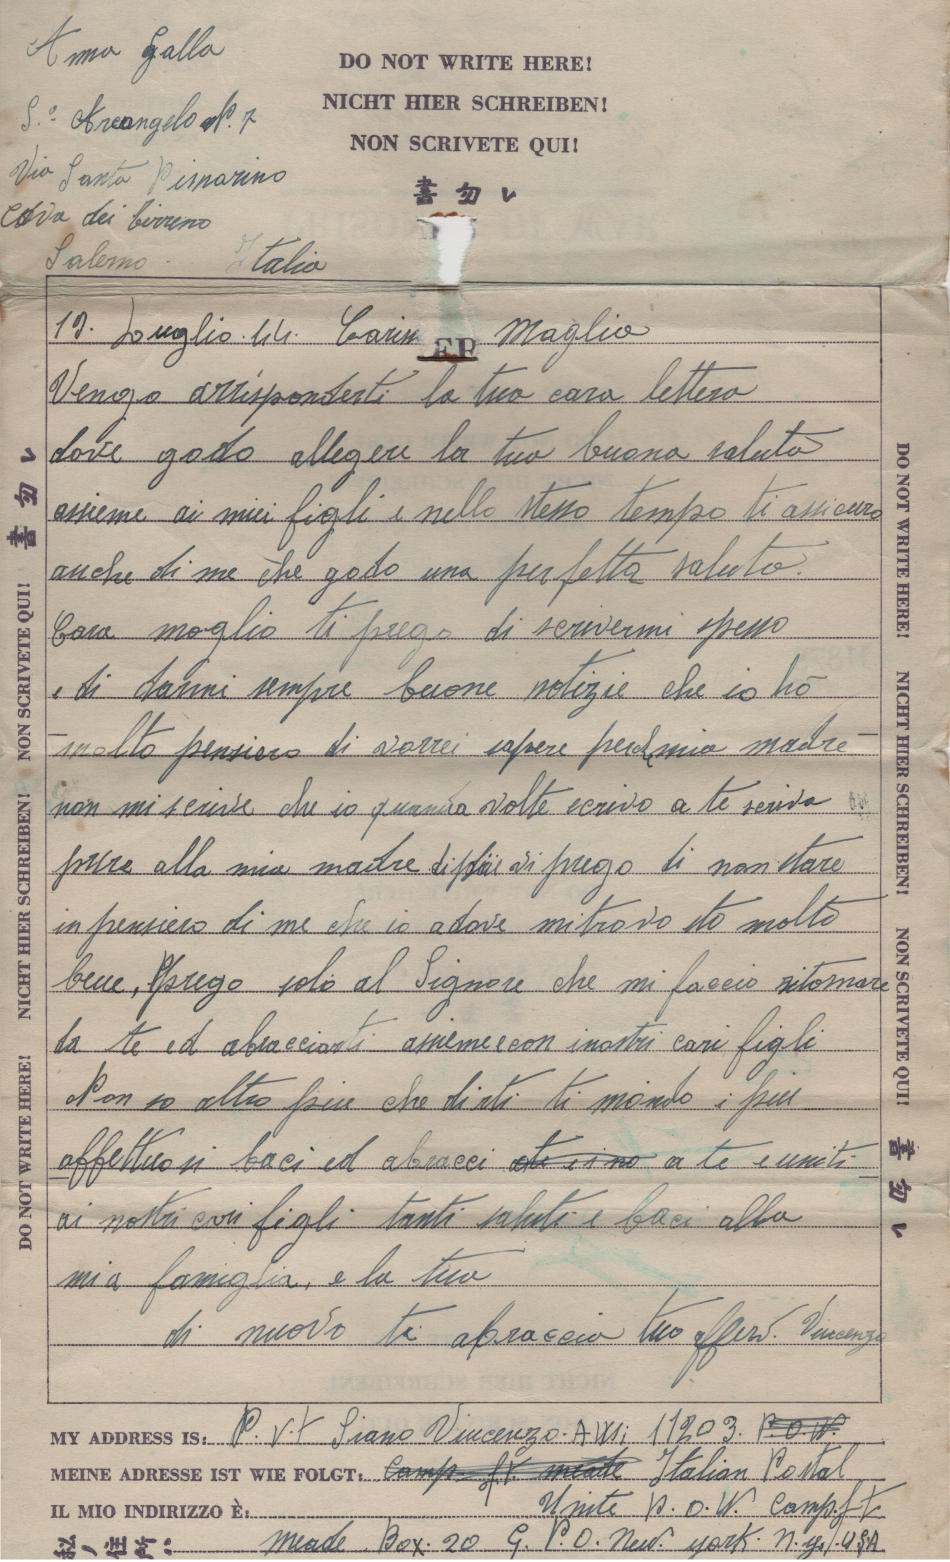 Anna Galla
S.o Arcangelo N. 7
Via Santa
Cava dei tirreno
Salerno. Italia
DO NOT WRITE HERE!
NICHT HIER SCHREIBEN!
NON SCRIVETE QUI!
書勿レ
19. Luglio. 44. Carin Maglia
Vengo arrisponderti la tua cara lettera
dove godo allegere la tua buona saluta
assieme ai miei figli e nello stesso tempo ti assicuro
anche di me che godo una perfetta saluta.
Cara moglia ti prego di scrivermi spesso
e di darmi sempre buone notizie che io hò
molto pensiero di vorrei sapere perchè mia madre
non mi scrive che io volte scrivo a te scriva
pure alla mia madre di più vi prego di non stare
in pensiero di me che io adove mitrovo sto molto
bene, prego solo al Signore che mi faccio ritornare
da te ed abracciarti assieme econ inostri cari figli
Non so altro piu che dirti ti mando i piu
affettuosi baci ed abracci a te e uniti
ai nostri cari figli tanti saluti e baci alla
mia famiglia, e la tua
di nuovo ti abraccio tuo Vincenzo
MY ADDRESS IS: P. v.t Siano Vincenzo. 11203. P.O.W.
MEINE ADRESSE IST WIE FOLGT: Camp. f.t. meade Italian Postal
IL MIO INDIRIZZO È: Unite P.O.W. Camp. f.t
私ノ住所: meade Box. 20 G. P.O. New. york. N.y. U.S.A
DO NOT WRITE HERE! NICHT HIER SCHREIBEN! NON SCRIVETE QUI! 書勿レ
DO NOT WRITE HERE! NICHT HIER SCHREIBEN! NON SCRIVETE QUI! 書勿レ